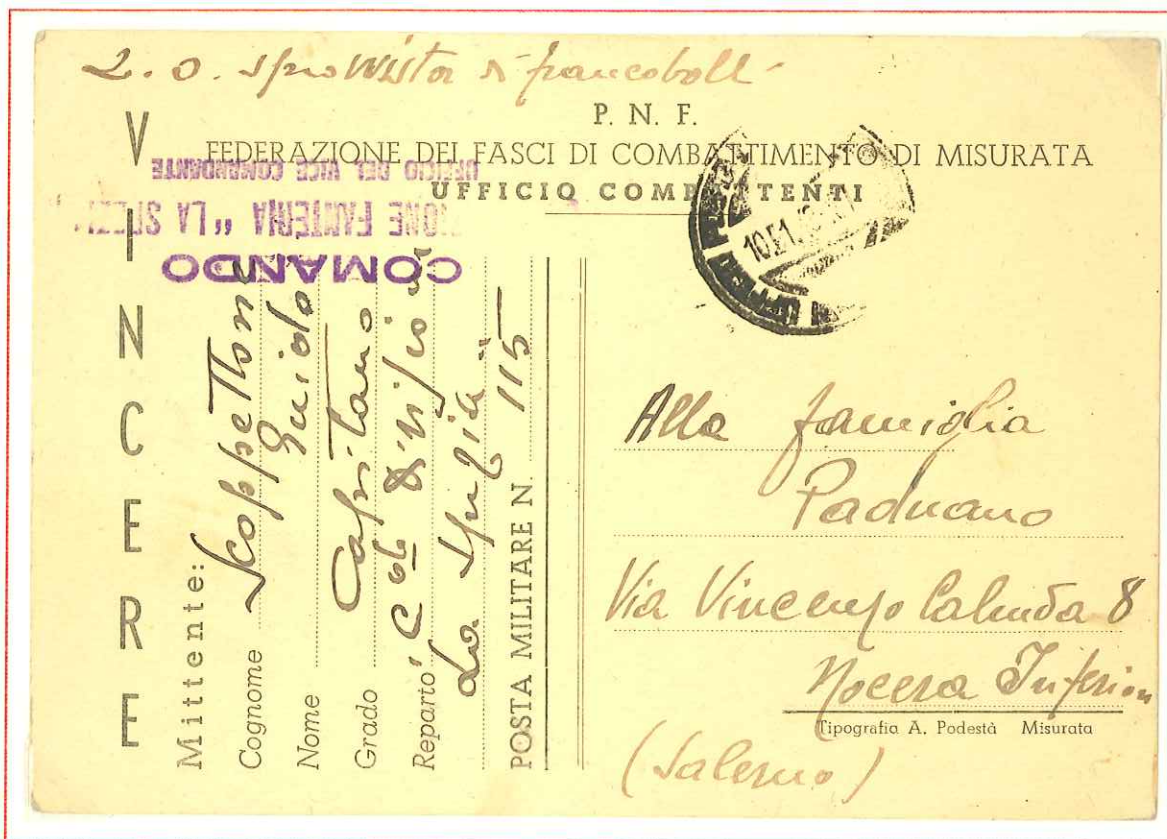 sprovvista di francobolli
P. N. F.
FEDERAZIONE DEI FASCI DI COMBATTIMENTO DI MISURATA
UFFICIO COMBATTENTI
VINCERE
COMANDO
FANTERIA "LA SPEZIA
UFFICIO DEL VICE COMANDANTE
Mittente:
Cognome Scoppettone
Nome Guido
Grado Capitano
Reparto Divisione
La Spezia
POSTA MILITARE N. 115
Alla famiglia
Paduano
Via Vincenzo Calenda 8
Nocera Inferiore
(Salerno)
Tipografia A. Podestà Misurata